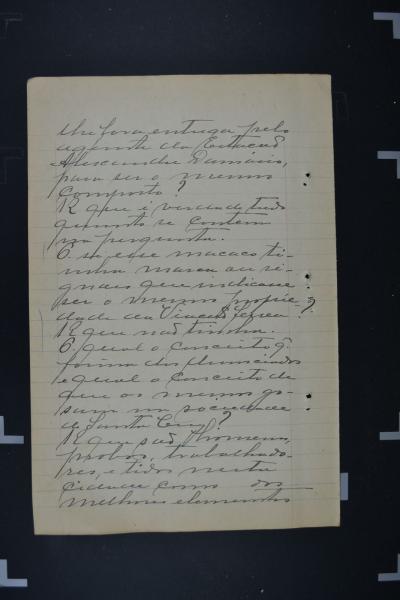 lhe fora entregue pelo
agente da Estação
Alexandre Damasio,
para ser o mesmo
composto?
R que é verdade tudo
quanto se contem
na pergunta.
P. se esse macaco ti-
nha marca ou si-
gnaes que indicasse
ser o mesmo proprie-
dade da Viação Ferrea?
R que não tinha.
P. qual o conceito q.
forma dos denunciados
e qual o conceito de
que os mesmos go-
sam na sociedade
de Santa Cruz?
R que são homens
probos, trabalhado-
res, e tidos nesta
cidade como dos
melhores elementos